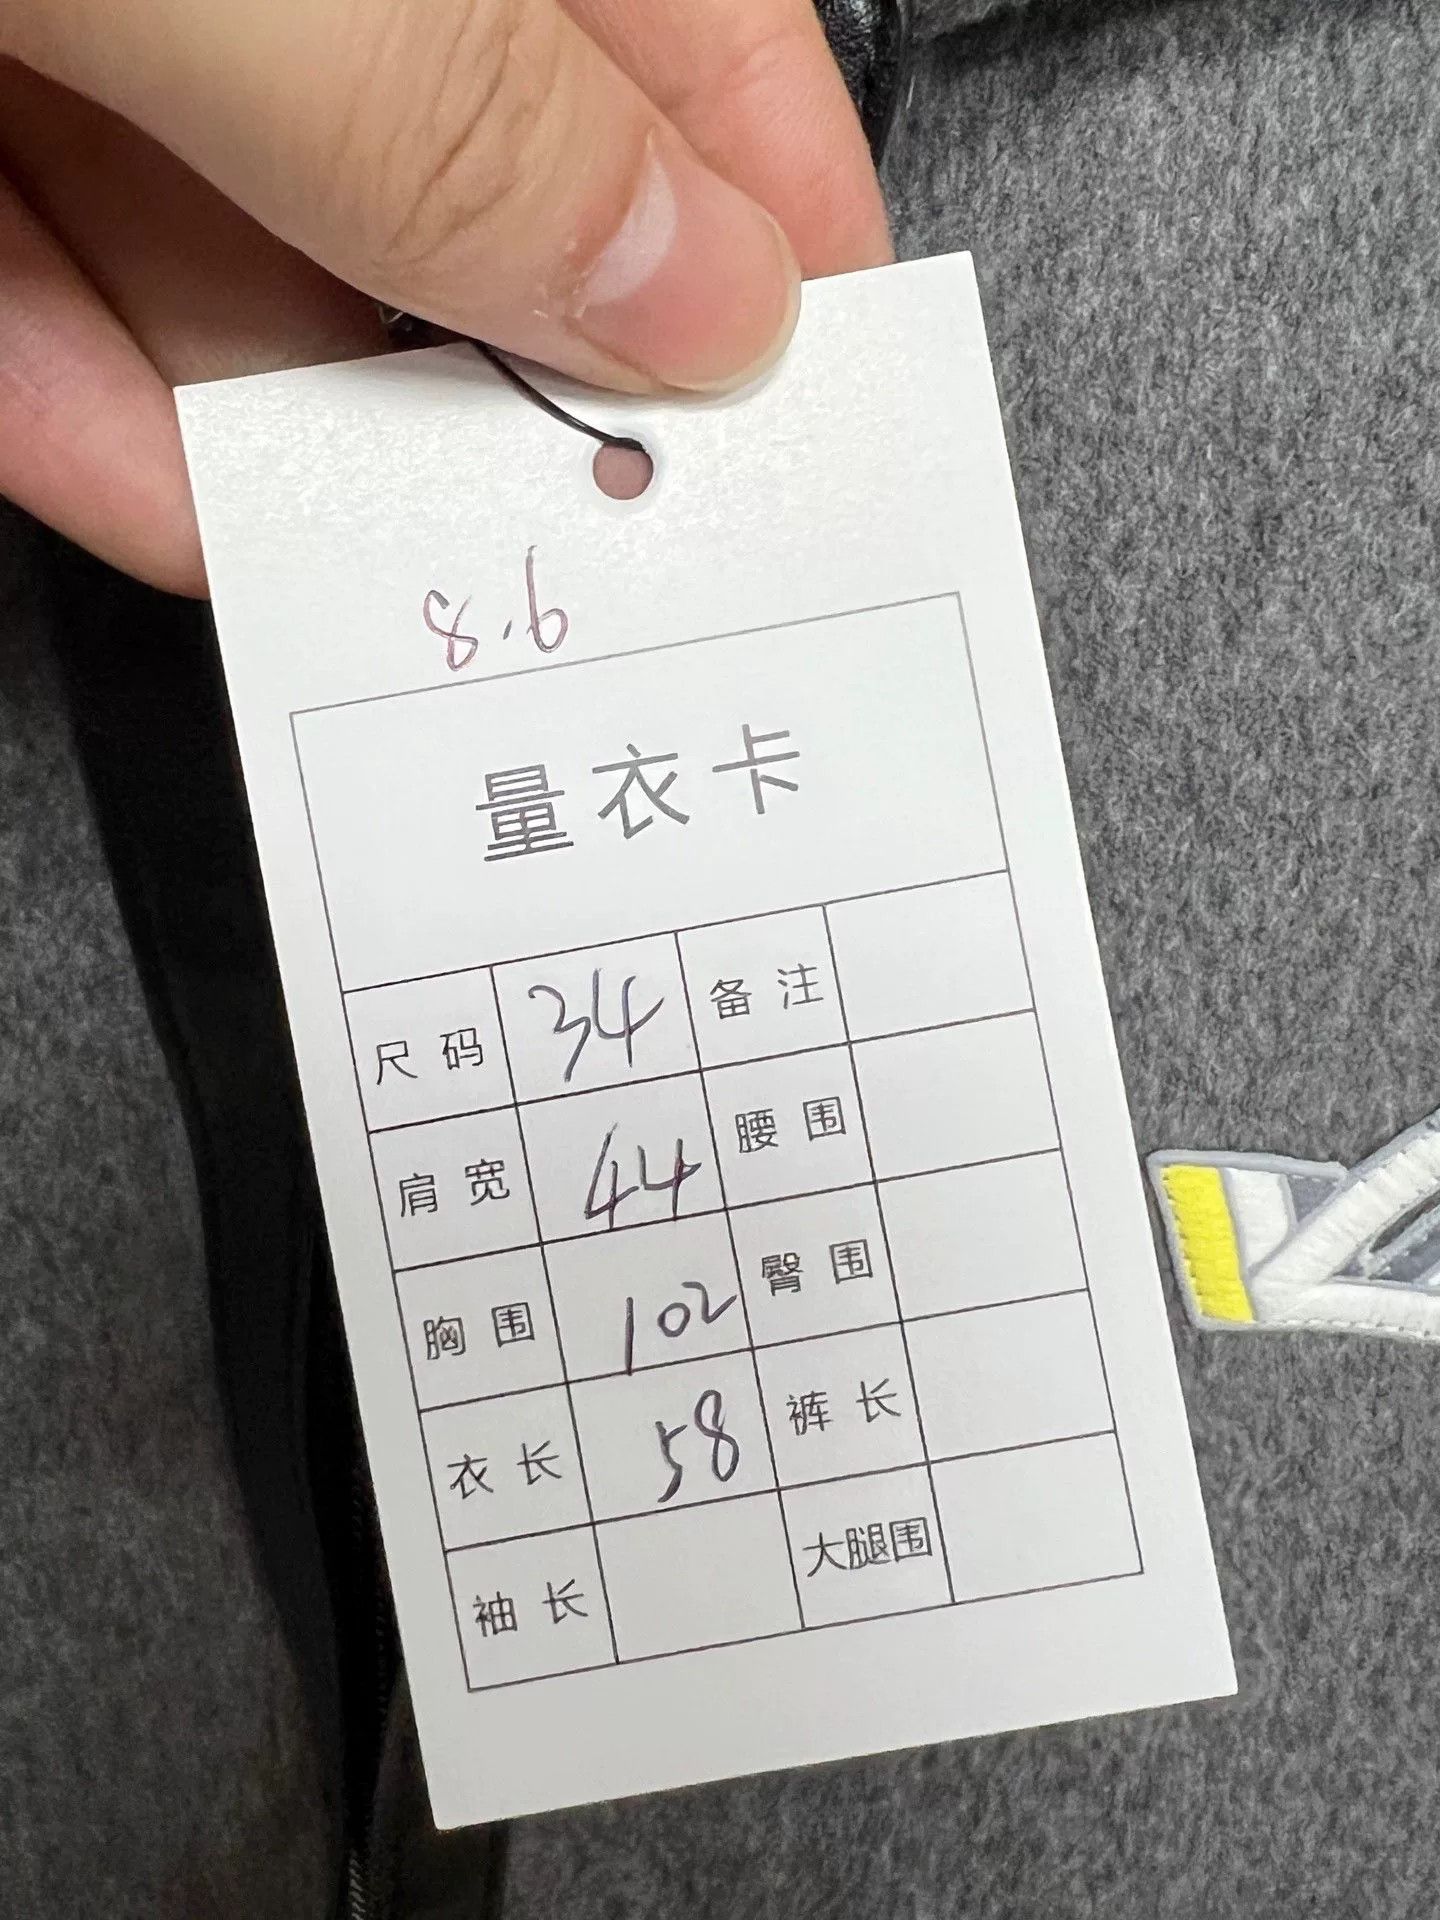 8.6
量衣卡
尺码 34 备注
肩宽 44 腰围
胸围 102 臀围
衣长 58 裤长
袖长 大腿围